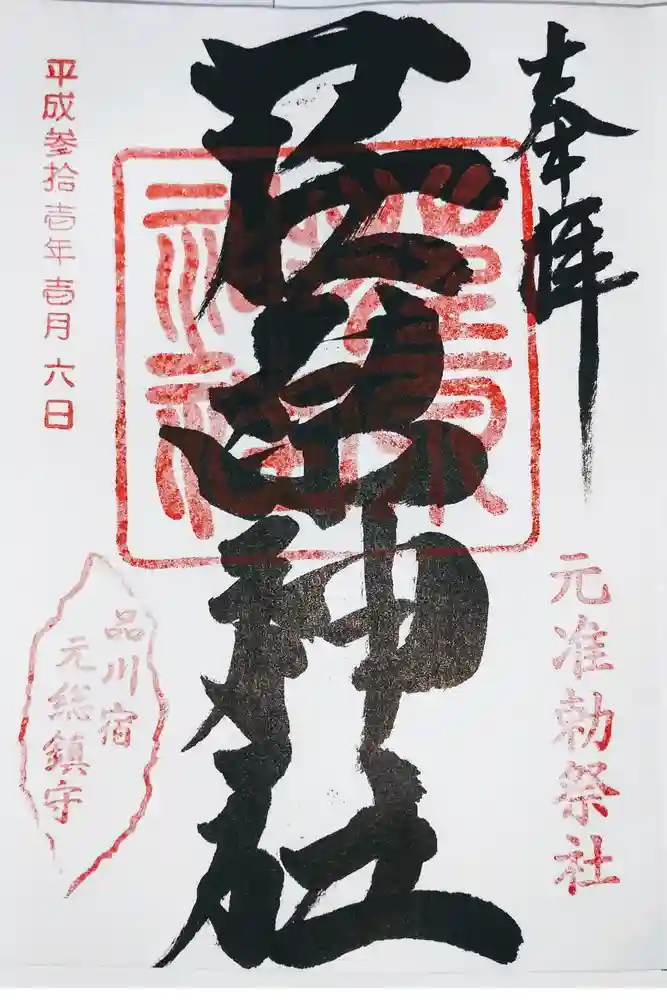 奉拝
元准勅祭社
荏原神社
平成参拾壱年壱月六日
品川宿
元総鎮守